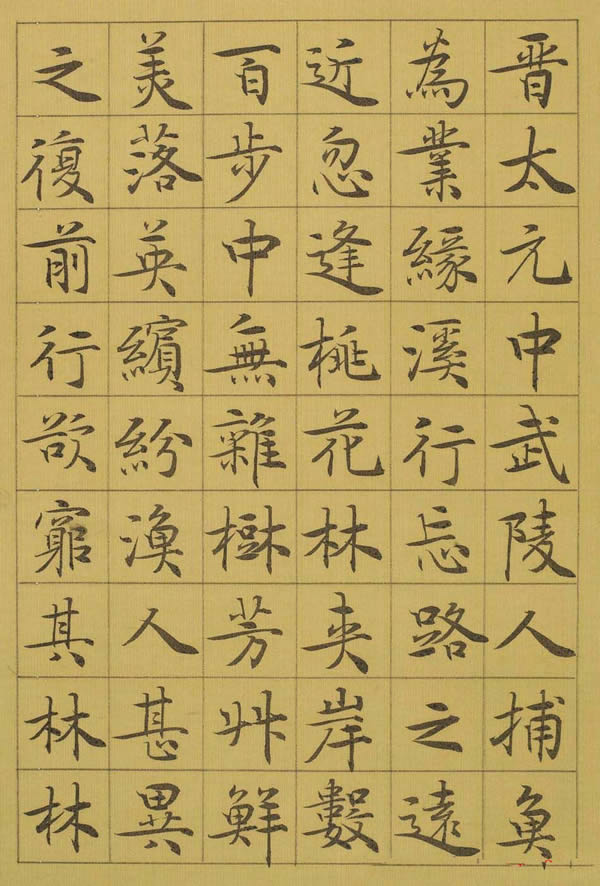 晋太元中武陵人捕魚
為業緣溪行忘路之遠
近忽逢桃花林夾岸數
百步中無雜樹芳艸鮮
美落英繽紛漁人甚異
之復前行欲窮其林林